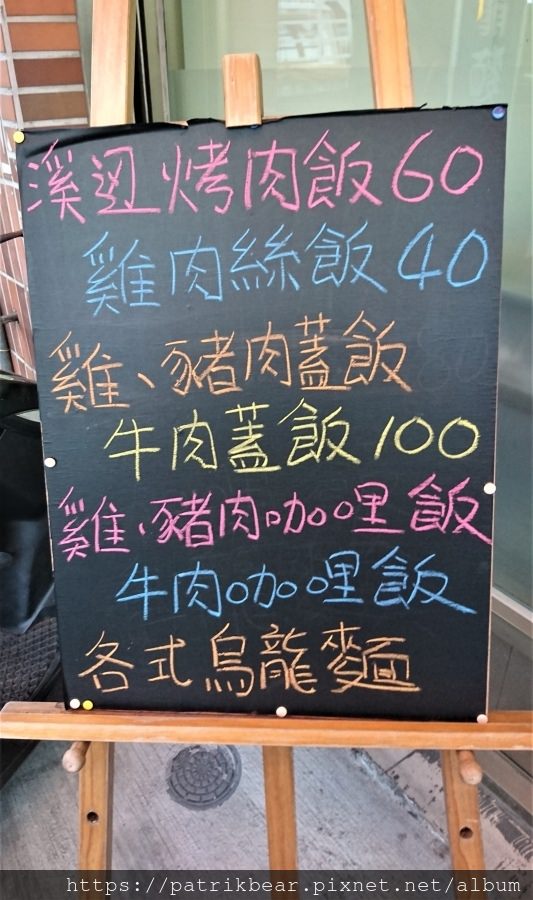 溪边烤肉飯60
雞肉絲飯40
雞、豬肉蓋飯
牛肉蓋飯100
雞、豬肉咖哩飯
牛肉咖哩飯
各式烏龍麵
https://patrikbear.pixnet.net/album